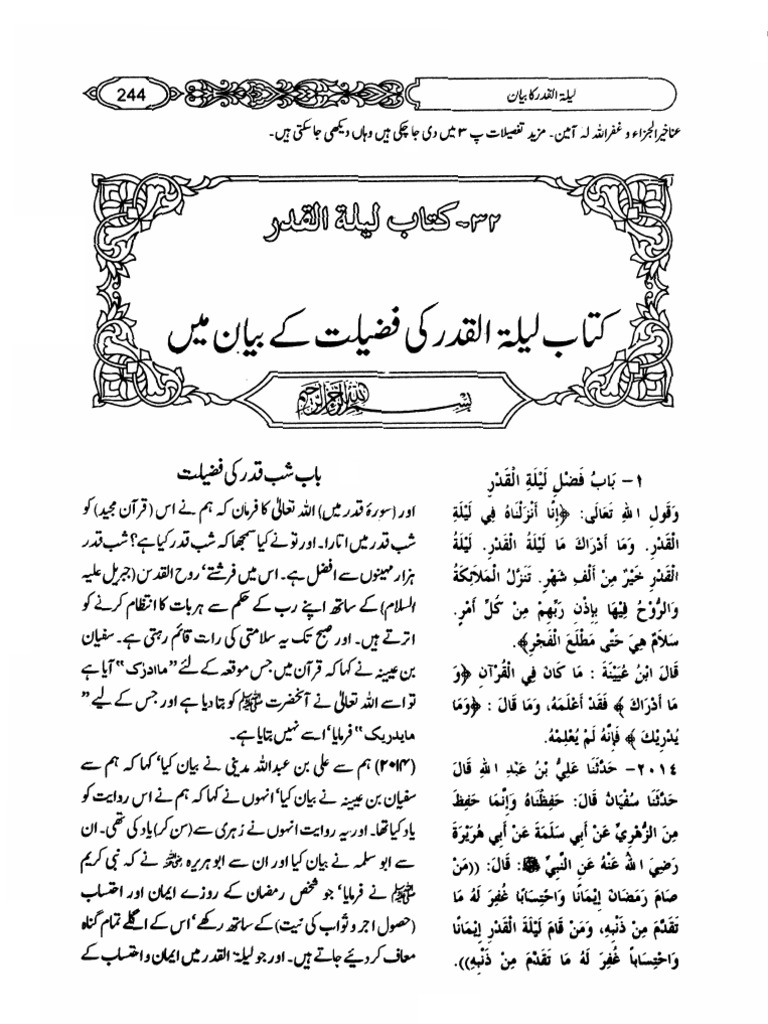 244
لیلۃ القدر کا بیان
عناخیر الجزاء و غفر اللہ لہ آمین۔ مزید تفصیلات پ ۳ میں دی جا چکی ہیں وہاں دیکھی جا سکتی ہیں۔
۳۲- كتاب ليلة القدر
کتاب لیلۃ القدر کی فضیلت کے بیان میں
بسم الله الرحمن الرحيم
١- بَابُ فَضْلِ لَيْلَةِ الْقَدْرِ
وَقَولِ اللهِ تَعَالَى: ﴿إِنَّا أَنْزَلْنَاهُ فِي لَيْلَةِ
الْقَدْرِ. وَمَا أَدْرَاكَ مَا لَيْلَةُ الْقَدْرِ. لَيْلَةُ
الْقَدْرِ خَيْرٌ مِنْ أَلْفِ شَهْرٍ. تَنَزَّلُ الْمَلاَئِكَةُ
وَالرُّوْحُ فِيْهَا بِإِذْنِ رَبِّهِمْ مِنْ كُلِّ أَمْرٍ.
سَلاَمٌ هِيَ حَتَّى مَطْلَعِ الْفَجْرِ﴾.
قَالَ ابْنُ عُيَيْنَةَ : مَا كَانَ فِي الْقُرْآنِ ﴿وَ
مَا أَدْرَاكَ ﴾ فَقَدْ أَعْلَمَهُ، وَمَا قَالَ : ﴿وَمَا
يُدْرِيْكَ ﴾ فَإِنَّهُ لَمْ يُعْلِمْهُ.
٢٠١٤- حَدَّثَنَا عَلِيُّ بْنُ عَبْدِ اللهِ قَالَ
حَدَّثَنَا سُفْيَانُ قَالَ: حَفِظْنَاهُ وَإِنَّمَا حَفِظَ
مِنَ الزُّهْرِيِّ عَنْ أَبِي سَلَمَةَ عَنْ أَبِي هُرَيْرَةَ
رَضِيَ اللهُ عَنْهُ عَنِ النَّبِيِّ ﷺ قَالَ: ((مَنْ
صَامَ رَمَضَانَ إِيْمَانًا وَاحْتِسَابًا غُفِرَ لَهُ مَا
تَقَدَّمَ مِنْ ذَنْبِهِ، وَمَنْ قَامَ لَيْلَةَ الْقَدْرِ إِيْمَانًا
وَاحْتِسَاباً غُفِرَ لَهُ مَا تَقَدَّمَ مِنْ ذَنْبِهِ)).
باب شب قدر کی فضیلت
اور (سورۂ قدر میں) اللہ تعالیٰ کا فرمان کہ ہم نے اس (قرآن مجید) کو
شب قدر میں اتارا۔ اور تو نے کیا سمجھا کہ شب قدر کیا ہے؟ شب قدر
ہزار مہینوں سے افضل ہے۔ اس میں فرشتے‘ روح القدس (جبریل علیہ
السلام) کے ساتھ اپنے رب کے حکم سے ہر بات کا انتظام کرنے کو
اترتے ہیں۔ اور صبح تک یہ سلامتی کی رات قائم رہتی ہے۔ سفیان
بن عیینہ نے کہا کہ قرآن میں جس موقعہ کے لئے ”ماادرٰک“ آیا ہے
تو اسے اللہ تعالیٰ نے آنحضرت ﷺ کو بتا دیا ہے اور جس کے لیے ”
مایدریک“ فرمایا‘ اسے نہیں بتایا ہے۔
(۲۰۱۴) ہم سے علی بن عبداللہ مدینی نے بیان کیا‘ کہا کہ ہم سے
سفیان بن عیینہ نے بیان کیا‘ انہوں نے کہا کہ ہم نے اس روایت کو
یاد کیا تھا۔ اور یہ روایت انہوں نے زہری سے (سن کر) یاد کی تھی۔ ان
سے ابو سلمہ نے بیان کیا اور ان سے ابو ہریرہ رضی اللہ عنہ نے کہ نبی کریم
ﷺ نے فرمایا‘ جو شخص رمضان کے روزے ایمان اور احتساب
(حصول اجر و ثواب کی نیت) کے ساتھ رکھے‘ اس کے اگلے تمام گناہ
معاف کر دئیے جاتے ہیں۔ اور جو لیلۃ القدر میں ایمان و احتساب کے